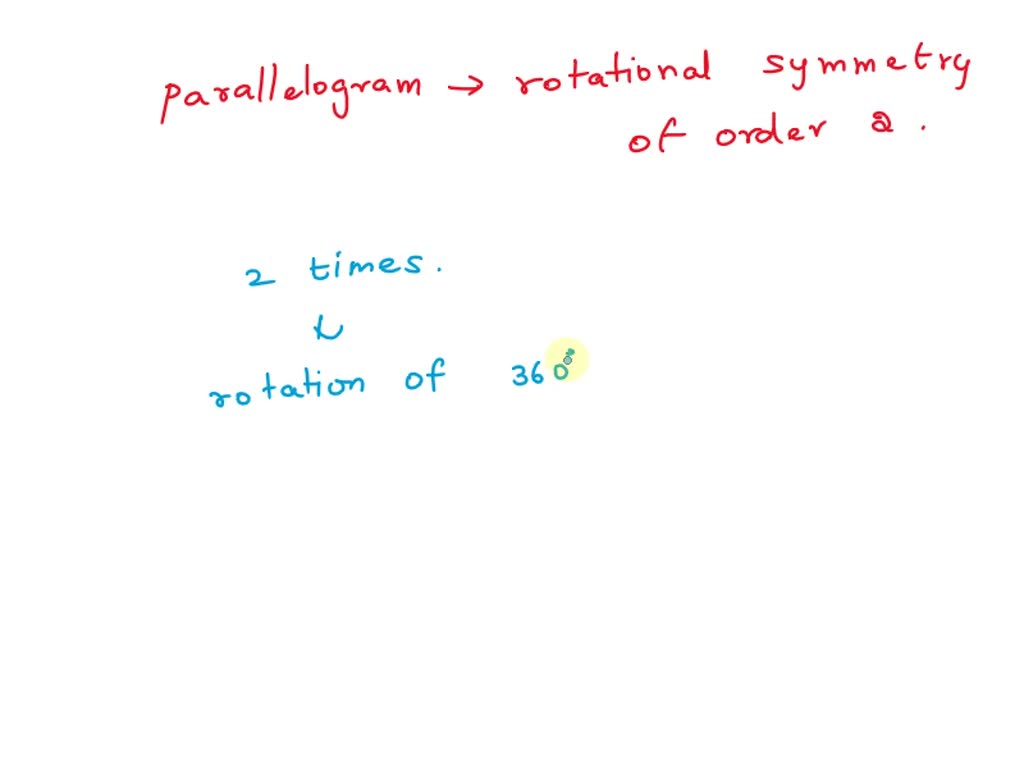 parallelogram → rotational symmetry
of order 2.
2 times.
↓
rotation of 360°